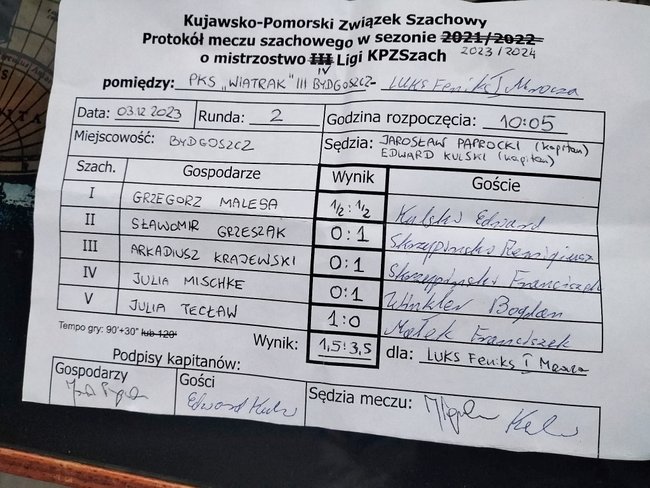 Kujawsko-Pomorski Związek Szachowy
Protokół meczu szachowego w sezonie 2021/2022 2023/2024
o mistrzostwo III IV Ligi KPZSzach
pomiędzy: PKS "WIATRAK" III BYDGOSZCZ - LUKS Feniks I Mrocza
Data: 03.12.2023 Runda: 2 Godzina rozpoczęcia: 10:05
Miejscowość: BYDGOSZCZ Sędzia: JAROSŁAW PAPROCKI (kapitan)
EDWARD KULSKI (kapitan)
Szach. Gospodarze Wynik Goście
I GRZEGORZ MALESA 1/2:1/2 Kulski Edward
II SŁAWOMIR GRZESZAK 0:1 Skrzypiński Remigiusz
III ARKADIUSZ KRAJEWSKI 0:1 Skrzypiński Franciszek
IV JULIA MISCHKE 0:1 Winkler Bogdan
V JULIA TECŁAW 1:0 Małek Franciszek
Tempo gry: 90'+30" lub 120' Wynik: 1,5:3,5 dla: LUKS Feniks I Mrocza
Podpisy kapitanów:
Gospodarzy Gości Sędzia meczu:
Edward